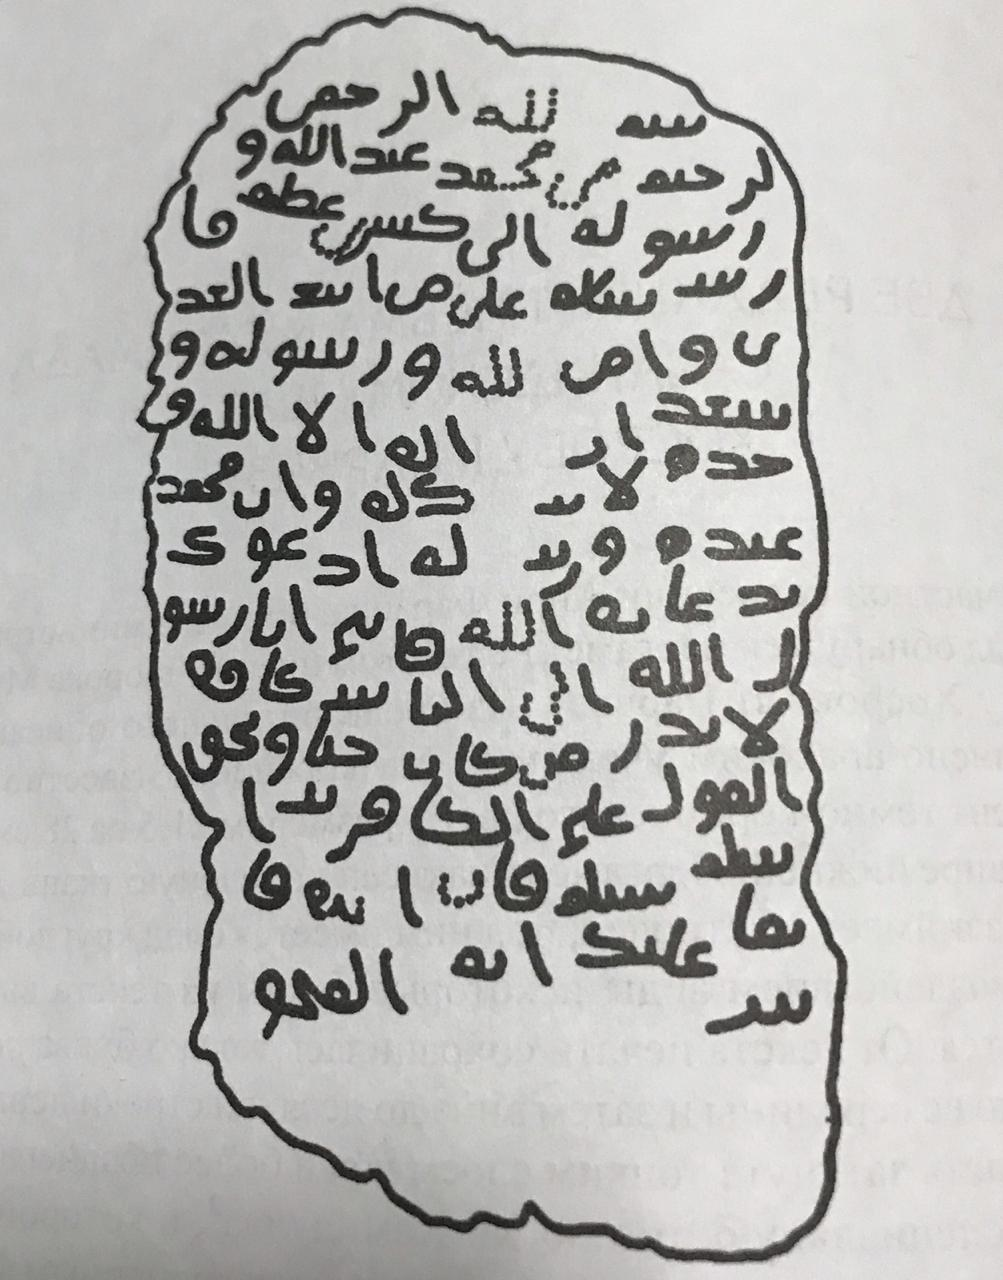 بسم الله الرحمن
الرحيم من محمد عبد الله و
رسوله الى كسرى عظيم فا
رس سلام على من اتبع الهد
ى وامن بالله ورسوله و
شهد ان اله الا الله و
حده لا له وان محمد
عبده و له ادعوك
بدعاية الله فاني انا رسو
ل الله الى الناس كافة
لانذر من كان حيا ويحق
القول على الكافرين ا
سلم تسلم فان ابيت فا
نما عليك اثم المجو
س